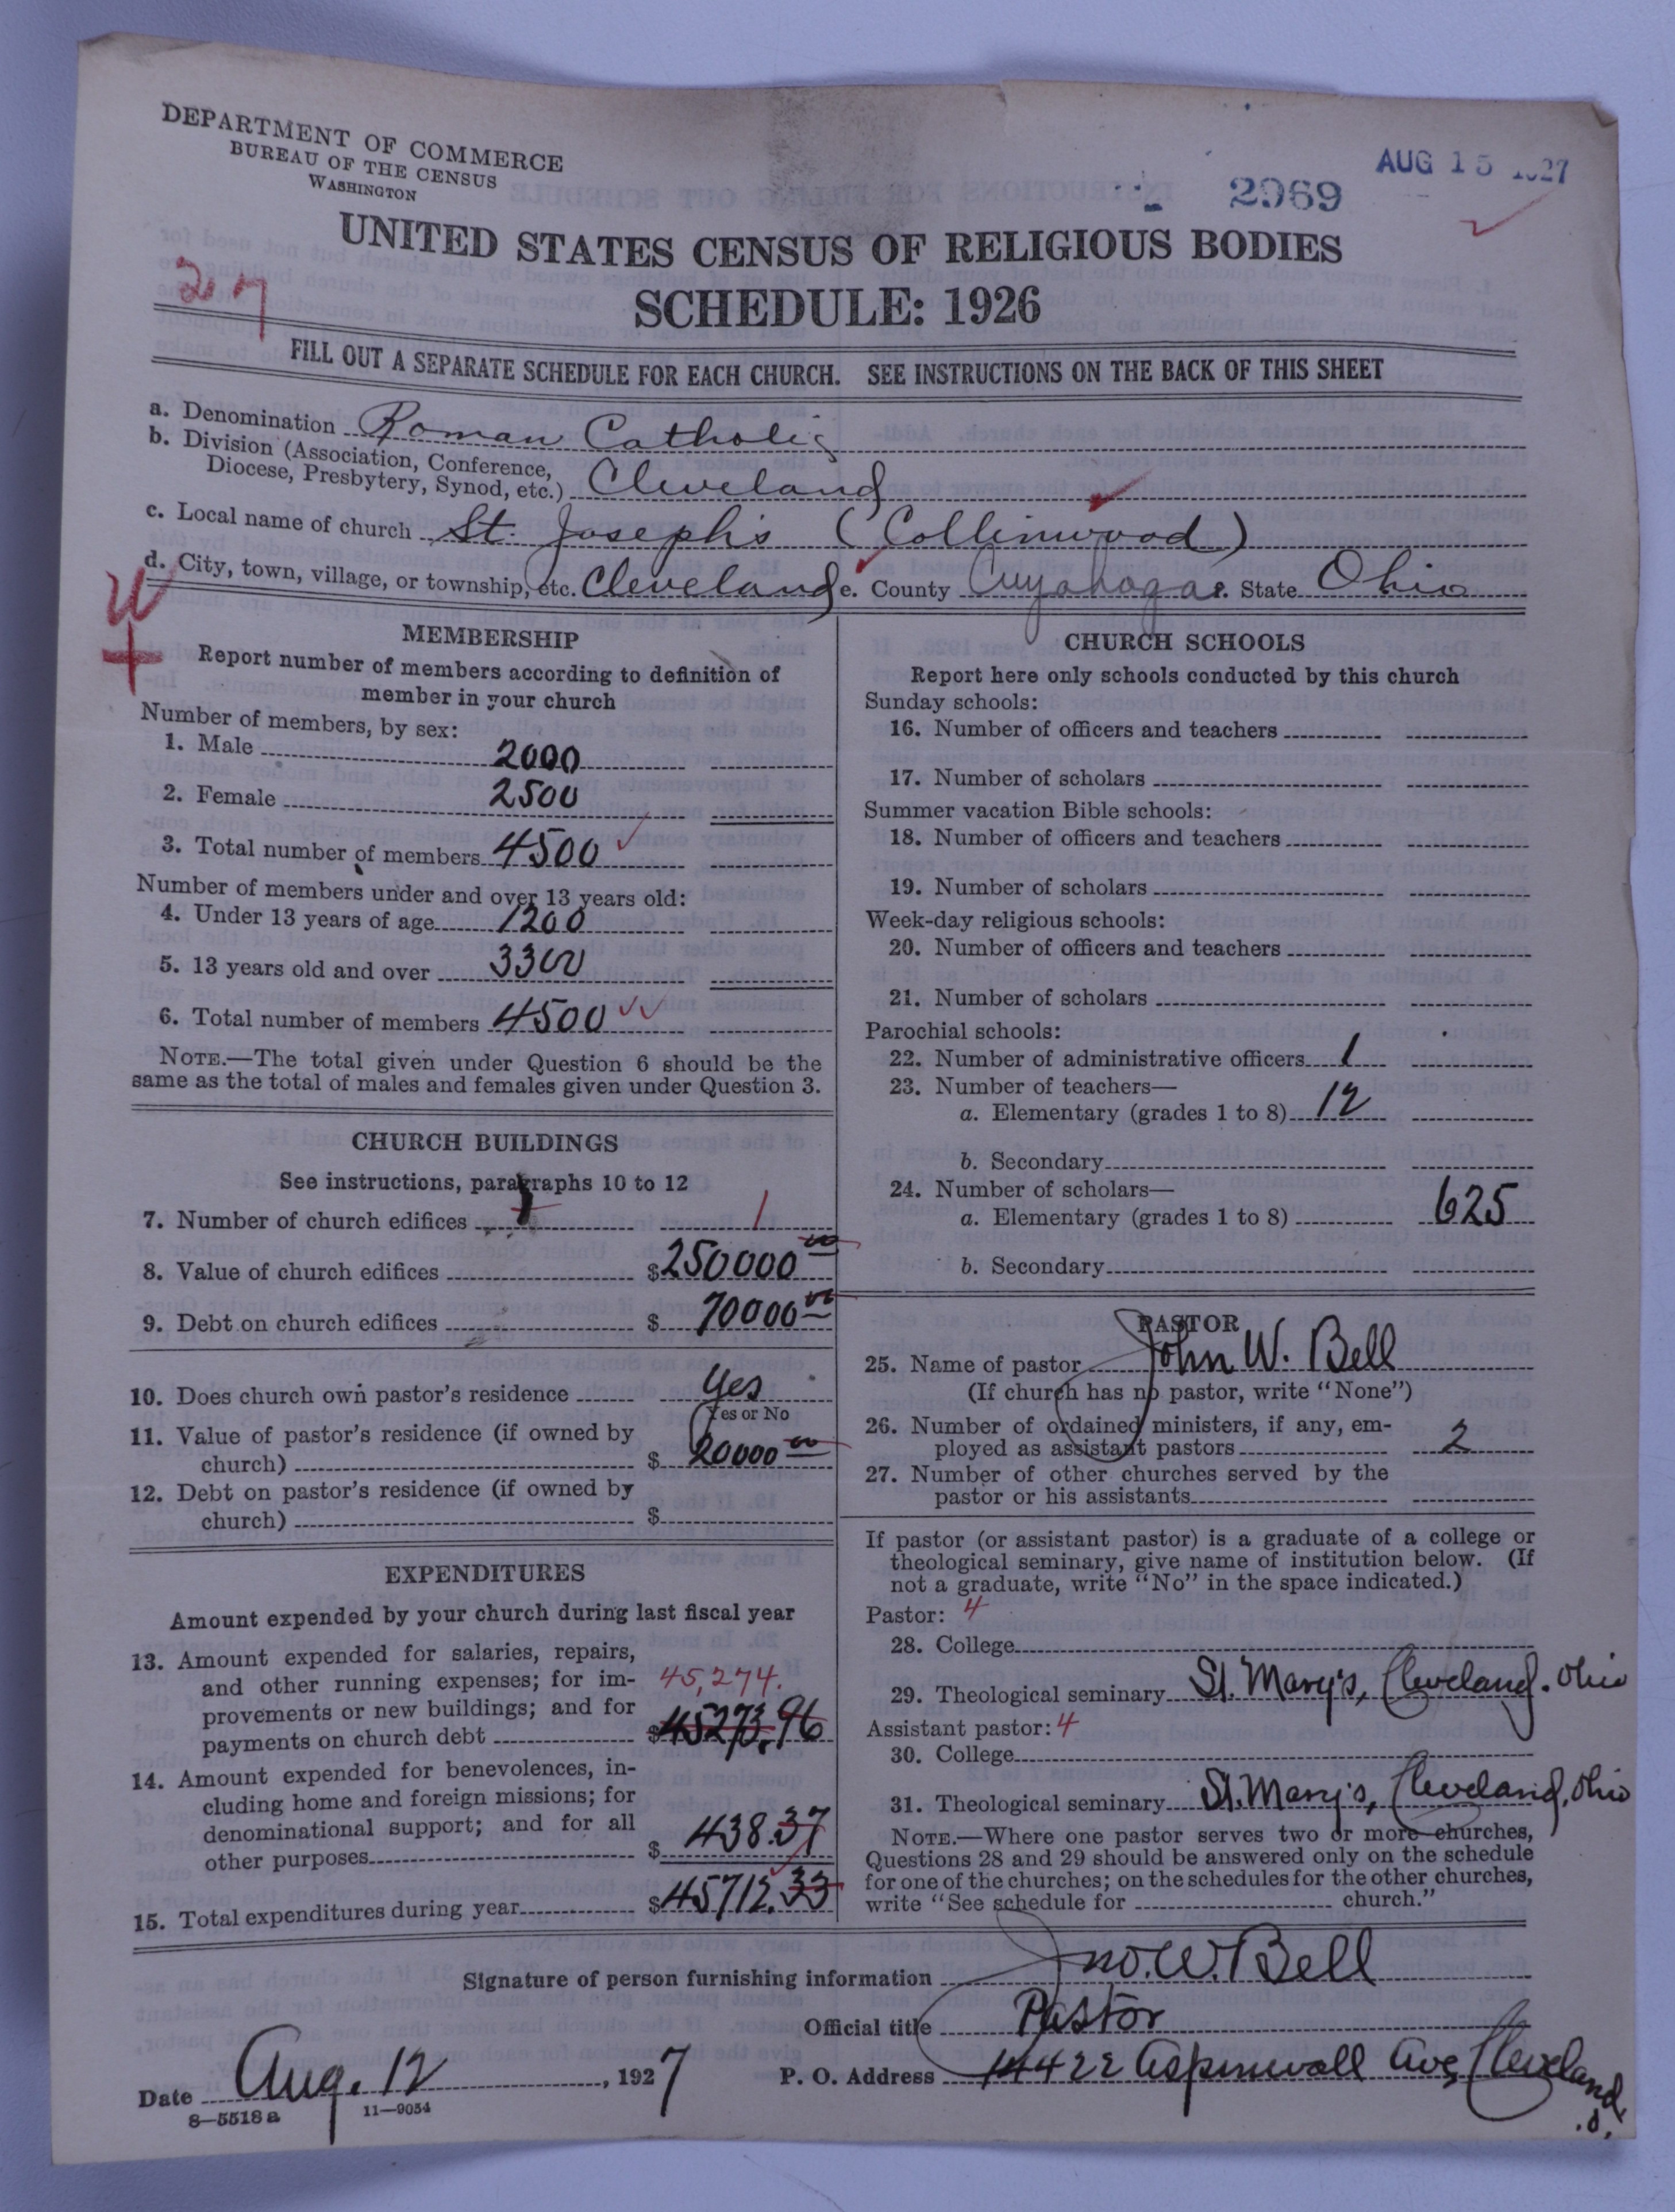 DEPARTMENT OF COMMERCE
BUREAU OF THE CENSUS
WASHINGTON
AUG 15 1927
2969
UNITED STATES CENSUS OF RELIGIOUS BODIES
27
SCHEDULE: 1926
FILL OUT A SEPARATE SCHEDULE FOR EACH CHURCH. SEE INSTRUCTIONS ON THE BACK OF THIS SHEET
a. Denomination Roman Catholic
b. Division (Association, Conference,
Diocese, Presbytery, Synod, etc.) Cleveland
c. Local name of church St. Joseph's (Collinwood)
d. City, town, village, or township, etc. Cleveland e. County Cuyahoga f. State Ohio
MEMBERSHIP
Report number of members according to definition of
member in your church
Number of members, by sex:
1. Male 2000
2. Female 2500
3. Total number of members 4500
Number of members under and over 13 years old:
4. Under 13 years of age 1200
5. 13 years old and over 3300
6. Total number of members 4500
NOTE.—The total given under Question 6 should be the
same as the total of males and females given under Question 3.
CHURCH BUILDINGS
See instructions, paragraphs 10 to 12
7. Number of church edifices 1 1
8. Value of church edifices $250000 00
9. Debt on church edifices $ 70000 00
10. Does church own pastor's residence Yes
Yes or No
11. Value of pastor's residence (if owned by
church) $ 20000 00
12. Debt on pastor's residence (if owned by
church) $
EXPENDITURES
Amount expended by your church during last fiscal year
13. Amount expended for salaries, repairs,
and other running expenses; for im- 45,274.
provements or new buildings; and for
payments on church debt $45273.96
14. Amount expended for benevolences, in-
cluding home and foreign missions; for
denominational support; and for all
other purposes $ 438.37
15. Total expenditures during year $45712.33
CHURCH SCHOOLS
Report here only schools conducted by this church
Sunday schools:
16. Number of officers and teachers
17. Number of scholars
Summer vacation Bible schools:
18. Number of officers and teachers
19. Number of scholars
Week-day religious schools:
20. Number of officers and teachers
21. Number of scholars
Parochial schools:
22. Number of administrative officers 1
23. Number of teachers—
a. Elementary (grades 1 to 8) 12
b. Secondary
24. Number of scholars—
a. Elementary (grades 1 to 8) 625
b. Secondary
PASTOR
25. Name of pastor John W. Bell
(If church has no pastor, write "None")
26. Number of ordained ministers, if any, em-
ployed as assistant pastors 2
27. Number of other churches served by the
pastor or his assistants
If pastor (or assistant pastor) is a graduate of a college or
theological seminary, give name of institution below. (If
not a graduate, write "No" in the space indicated.)
Pastor: 4
28. College
29. Theological seminary St. Mary's, Cleveland. Ohio
Assistant pastor: 4
30. College
31. Theological seminary St. Mary's, Cleveland, Ohio
NOTE.—Where one pastor serves two or more churches,
Questions 28 and 29 should be answered only on the schedule
for one of the churches; on the schedules for the other churches,
write "See schedule for church."
Signature of person furnishing information Jno. W. Bell
Official title Pastor
Date Aug. 12, 1927 P. O. Address 14422 Aspinwall Ave, Cleveland, O.
8—5518a 11—9054